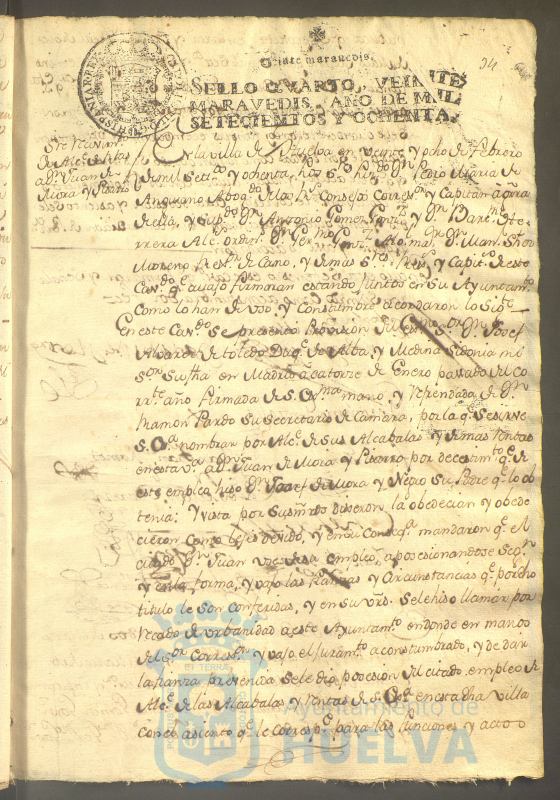 94
Veinte maravedis.
SELLO QVARTO, VEINTE
MARAVEDIS, AÑO DE MIL
SETECIENTOS Y OCHENTA.
de Alce de las
a Dn Juan de
Mora y Pizarro
En la villa de Huelva en veinte y ocho de Febrero
de mil Settos y ochenta, los Sres Dn Pedro Maria de
Anguiano Abogdo de los Rs Consejos Corregr y Capitan a grra
de ella, y sup Dn Antonio Gomez Dn
rrera Alce ordin Dn Alg mar Dn Manl
Moreno de Cano, y demas Sres y Capits de este
Cavdo qe avajo firmaran estando juntos en su Ayuntamto
Como lo han de uso, y Constumbre acordaron lo sigte
En este Cavdo se presento Provision del Exmo Sor Dn Josef
Alvarez de toledo Duqe de Alba, y Medina Sidonia mi
Sor Su fha en Madrid a catorze de Enero pasado del co
rrte año firmada de S. Exa mano, y refrendada de Dn
Ramon Pardo su Secretario de Camara, por la qe se sirve
S. Exa nombrar por Alce de sus Alcabalas y demas Rentas
en esta va a Dn Juan de Mora y Pizarro por decestimto qe de
este empleo hizo Dn Josef de Mora y Negro su Padre qe lo ob
tenia: Y vista por sus mrds dixeron la obedecian y obede
cieron como es devido, y en su Conseqa mandaron qe el
citado Dn Juan use de su empleo, aposesionandose segn
y en la forma, y vajo las fianzas y Circunstancias qe por dho
titulo le son conferidas, y en su vrd. se le hizo llamar por
recado de urbanidad a este Ayuntamto en donde en manos
del Sor Corregr y vajo el juramto acostumbrado, y de dar
la fianza prevenida se le dio posesion del citado empleo de
Alce de las Alcabalas y Rentas de S. Exa en esta dha villa
con el asiento qe le correspe para las funciones y actos
Ayuntamiento de
HUELVA